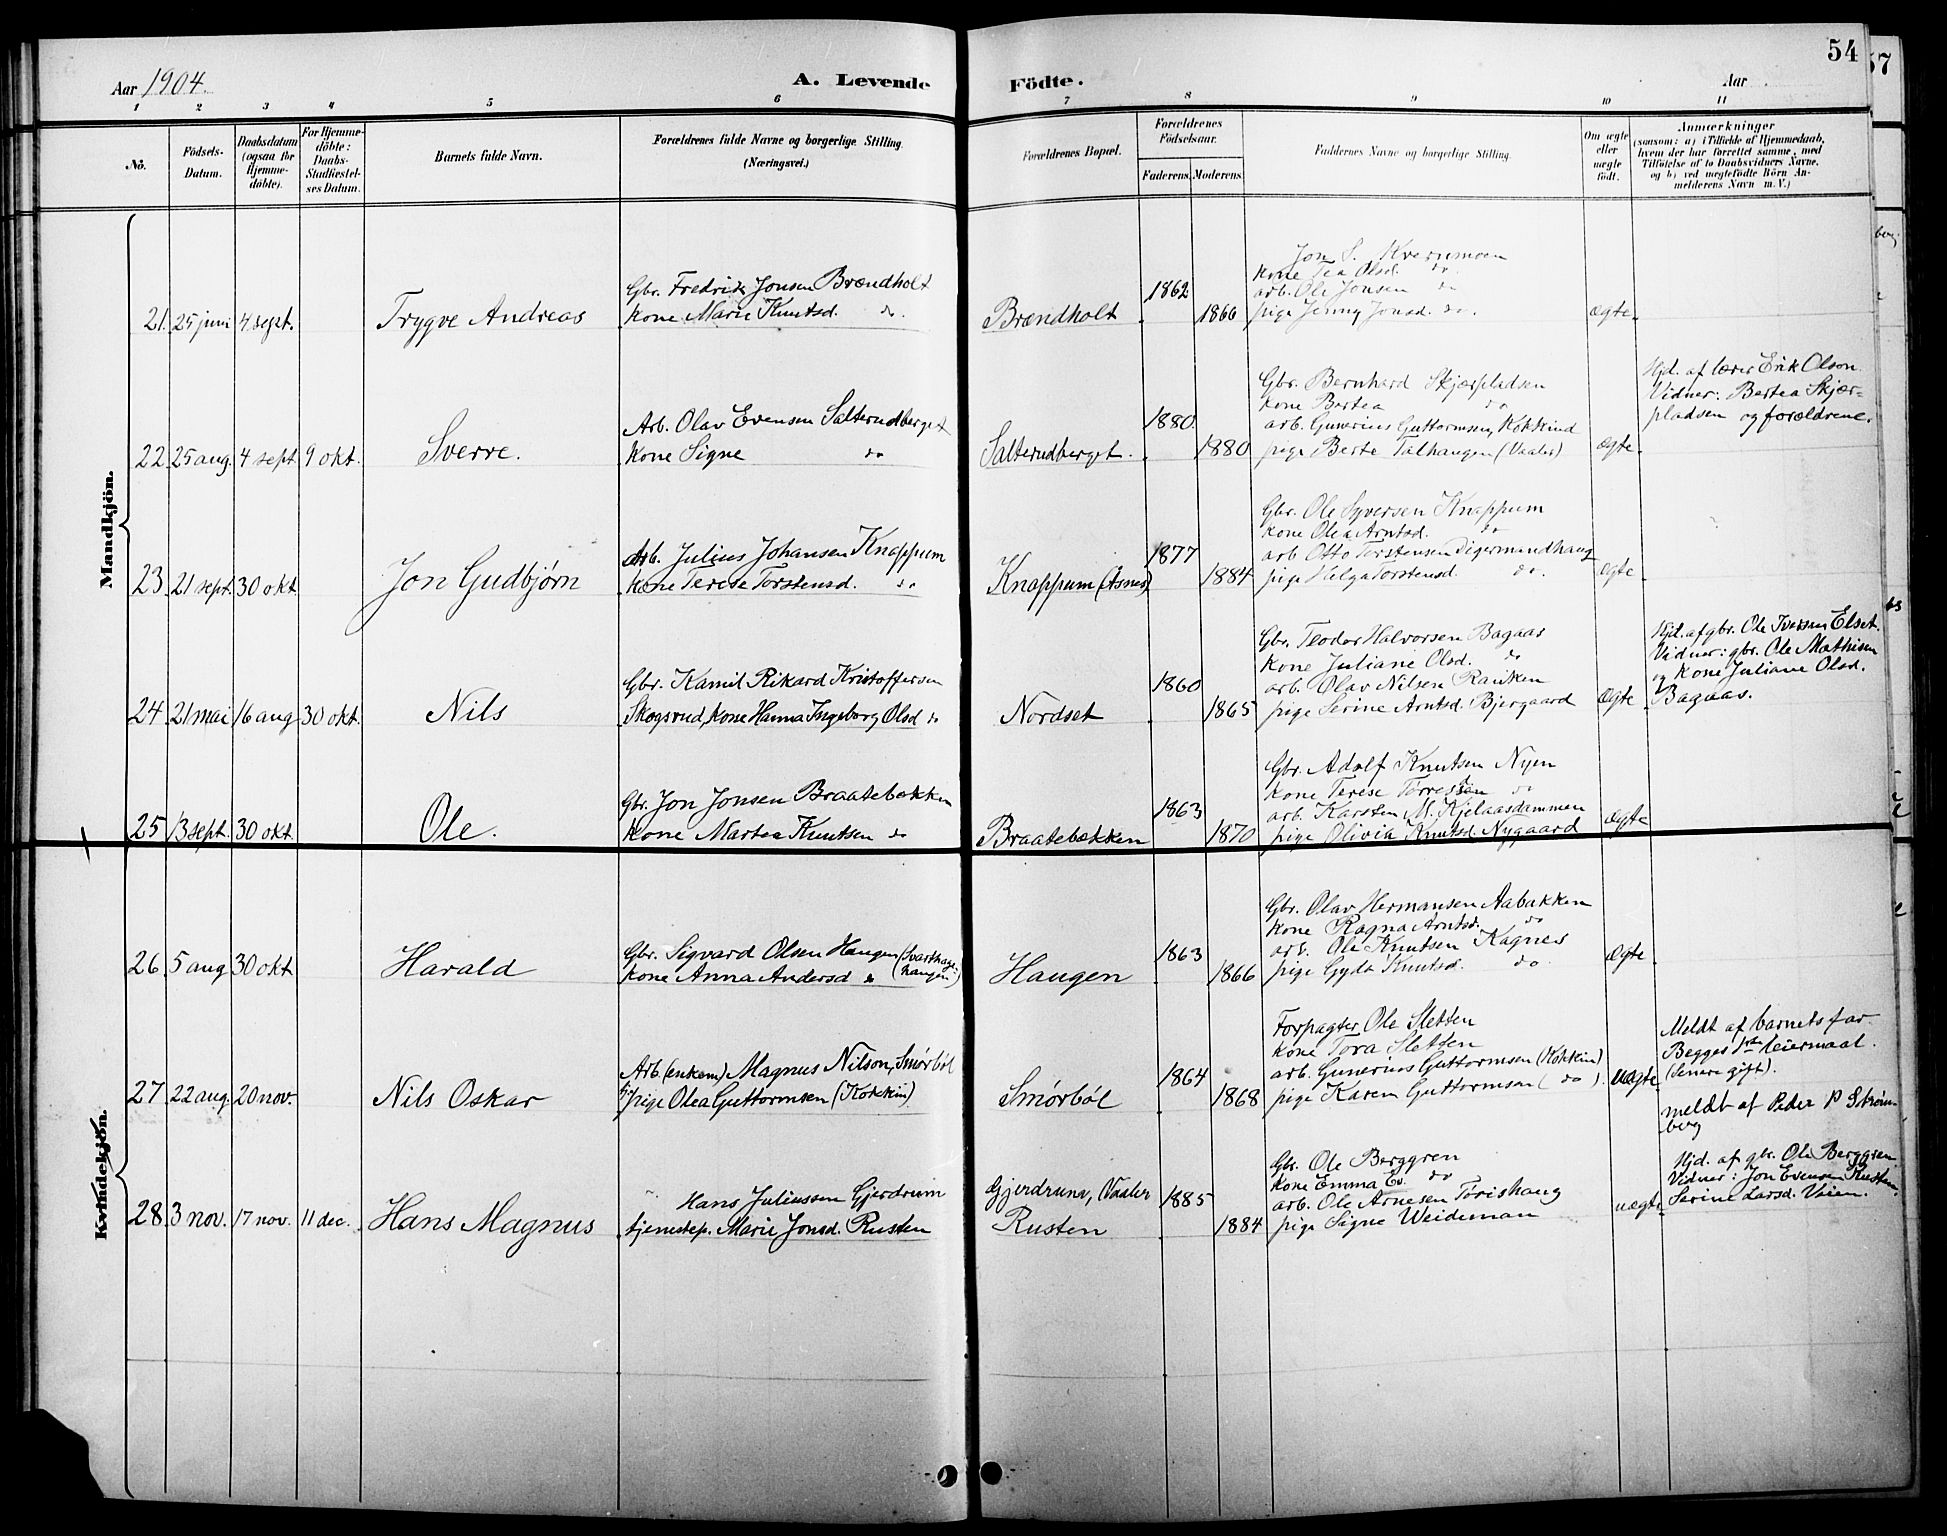 Aar 1904.
A. Levende
Födte.
Aar
54
57
1 2 3 4 5 6 7 8 9 10 11
No.
Födsels-
Datum.
Daabsdatum
(ogsaa för
Hjemme-
döbte).
For Hjemme-
döbte:
Daabs-
Stadfæstel-
ses Datum.
Barnets fulde Navn.
Forældrenes fulde Navne og borgerlige Stilling.
(Næringsvei.)
Forældrenes Bopæl.
Forældrenes
Födselsaar.
Faderens.
Moderens.
Faddernes Navne og borgerlige Stilling.
Om ægte
eller
uægte
födt.
Anmærkninger
(saasom: a) i Tilfælde af Hjemmedaab,
hvem der har forrettet samme, med
Tilföielse af to Daabsvidners Navne.
og b) ved uægtefödte Börn An-
melderens Navn m. V.)
Mandkjön.
21. 25 juni 4 sept. Trygve Andreas
Gbr. Fredrik Jonsen Brændholt
kone Marie Knutsd. do.
Brændholt 1862 1866
Jon S. Kvernmoen
kone Tea Olsd. do.
arb. Ole Jonsen do
pige Jenny Jonsd. do.
ægte
22. 25 aug. 4 sept 9 okt. Sverre.
Arb. Olav Evensen Salterudberget
kone Signe do
Salterudberget. 1880 1880
Gbr. Bernhard Skjærpladsen
kone Bertea do
arb. Gunerius Guttormsen, Kokkind
pige Berte Talhaugen (Vaaler)
ægte
Hjd. af lærer Erik Olson.
Vidner: Bertea Skjær-
pladsen og forældrene.
23. 21 sept. 30 okt. Jon Gudbjørn
Arb. Julius Johansen Knappum
kone Terese Torstensd. do
Knappum (Åsnes) 1877 1884
Gbr. Ole Syversen Knappum
kone Olea Arntsd. do
arb. Otto Torstensen Digermandhaug
pige Helga Torstensd. do.
ægte
24. 21 mai 16 aug 30 okt. Nils
Gbr. Kamil Rikard Kristoffersen
Skogsrud, kone Hanna Ingeborg Olsd do
Nordset 1860 1865
Gbr. Teodor Halvorsen Bagaas
kone Juliane Olsd. do
arb. Olav Nilsen Rauken
pige Serine Arntsd. Bjergaard
ægte
Hjd. af gbr. Ole Iversen Elset.
Vidner: gbr. Ole Mathisen
og kone Juliane Olsd.
Bagaas.
25. 13 sept. 30 okt. Ole.
Gbr. Jon Jonsen Braatebækken
kone Martea Knutsen do
Braatebækken 1863 1870
Gbr. Adolf Knutsen Nyen
kone Terese Torressen do
arb. Karsten M. Kjelaasdammen
pige Olivia Knutsd. Nygaard
ægte
Kvindekjön.
26. 5 aug 30 okt Harald
Gbr. Sigvard Olsen Haugen (Svarthags-
kone Anna Andersd do haugen)
Haugen 1863 1866
Gbr. Olav Hermansen Aabakken
kone Ragna Arntsd. do
arb. Ole Knutsen Kagnes
pige Gyda Knutsd. do.
ægte
27. 22 aug. 20 nov. Nils Oskar
Arb. (enkem) Magnus Nilson, Smørbøl
pige Olea Guttormsen (Kokkin)
Smørbøl 1864 1868
Forpagter Ole Sletten
kone Tora Sletten
arb. Gunerius Guttormsen (Kokkin)
pige Karen Guttormsen (do).
uægte
Meldt af barnets far.
Begges 1ste leiermaal.
(Senere gift).
28. 3 nov. 17 nov. 11 dec. Hans Magnus
Hans Juliussen Gjerdrum
tjenestep. Marie Jonsd. Rusten
Gjerdrum, Vaaler 1885
Rusten 1884
Gbr. Ole Berggren
kone Emma Ev. do
arb. Ole Arnesen Tørishaug
pige Signe Weideman
uægte
meldt af Peder P Strøm-
berg
Hjd. af gbr. Ole Berggren.
Vidner: Jon Evensen Rusten.
Serine Larsd. Veien.